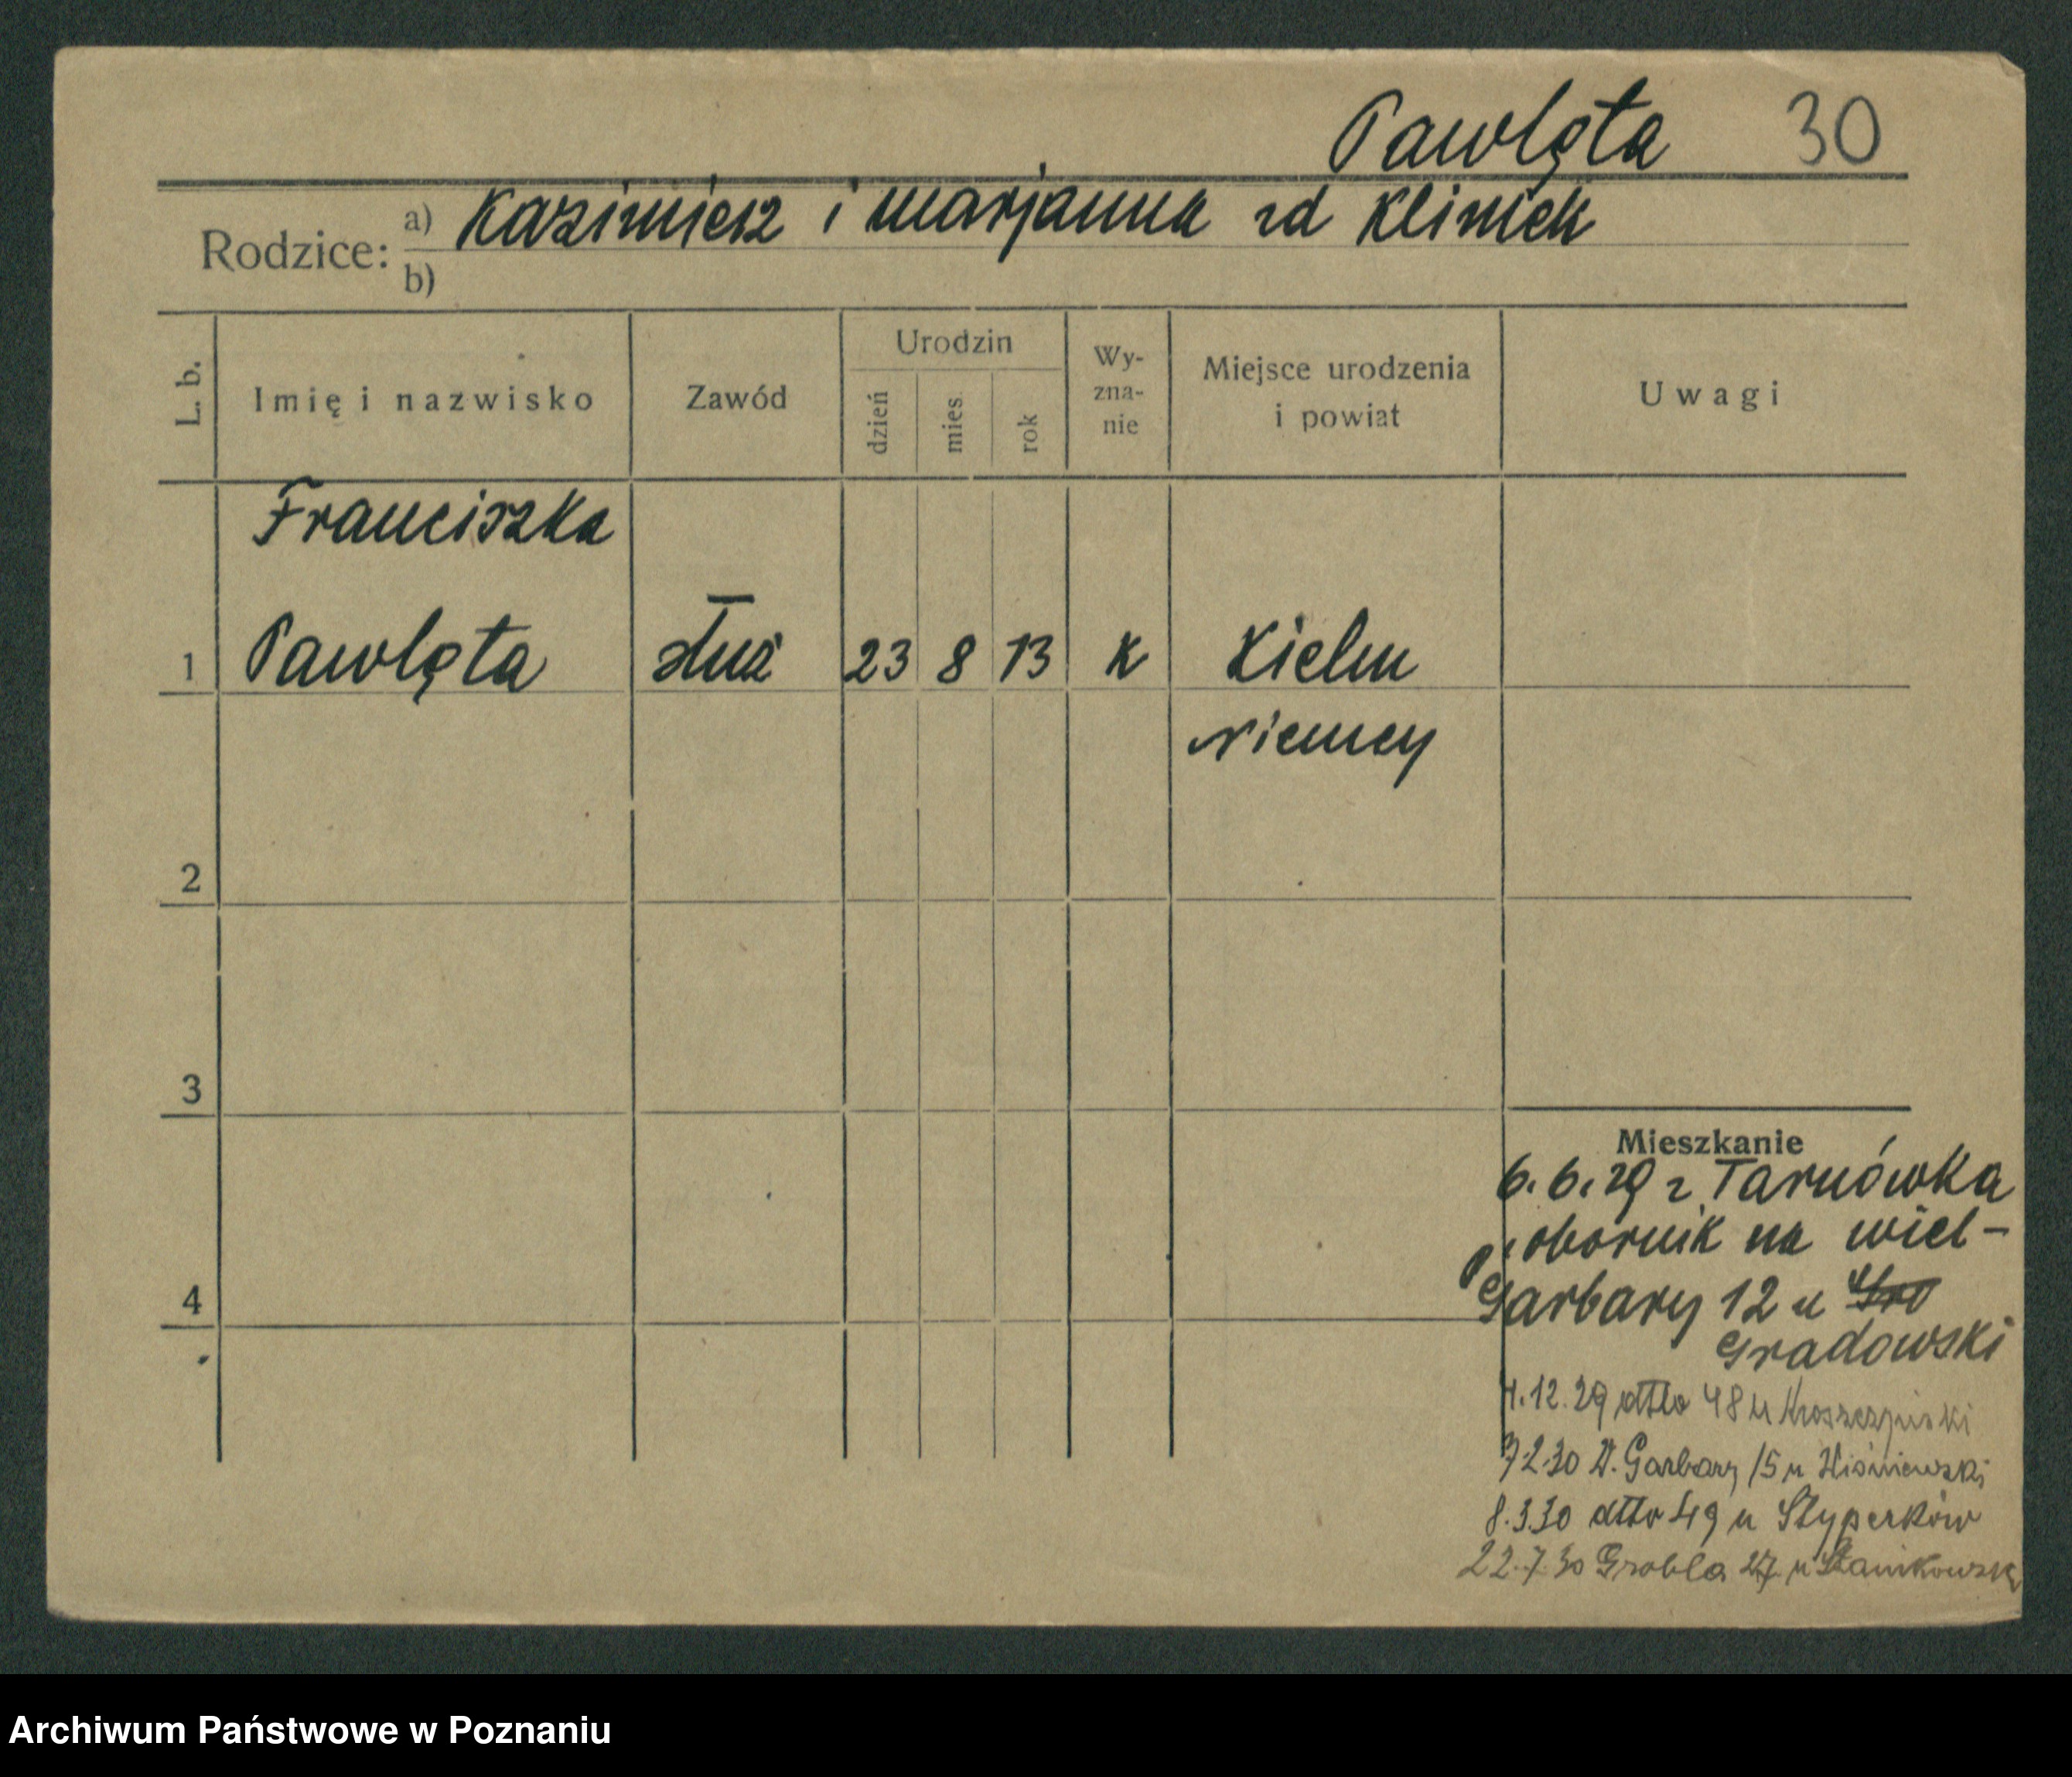 Pawlęta 30
Rodzice: a) Kazimierz i Marjanna zd Klimek
b)
L. b. Imię i nazwisko Zawód Urodzin dzień mies. rok Wy-zna-nie Miejsce urodzenia i powiat Uwagi
Franciszka
1 Pawlęta służ 23 8 13 K Kielm
Niemcy
2
3
Mieszkanie
6.6.29 z Tarnówka
p. obornik na wiel-
4 Garbary 12 u Gro
Gradowski
4.12.29 dtto 48 u
7.2.30 W. Garbary 15 u Wiśniewski
8.3.30 dtto 49 u Styperków
22.7.30 Grobla 27 u
Archiwum Państwowe w Poznaniu